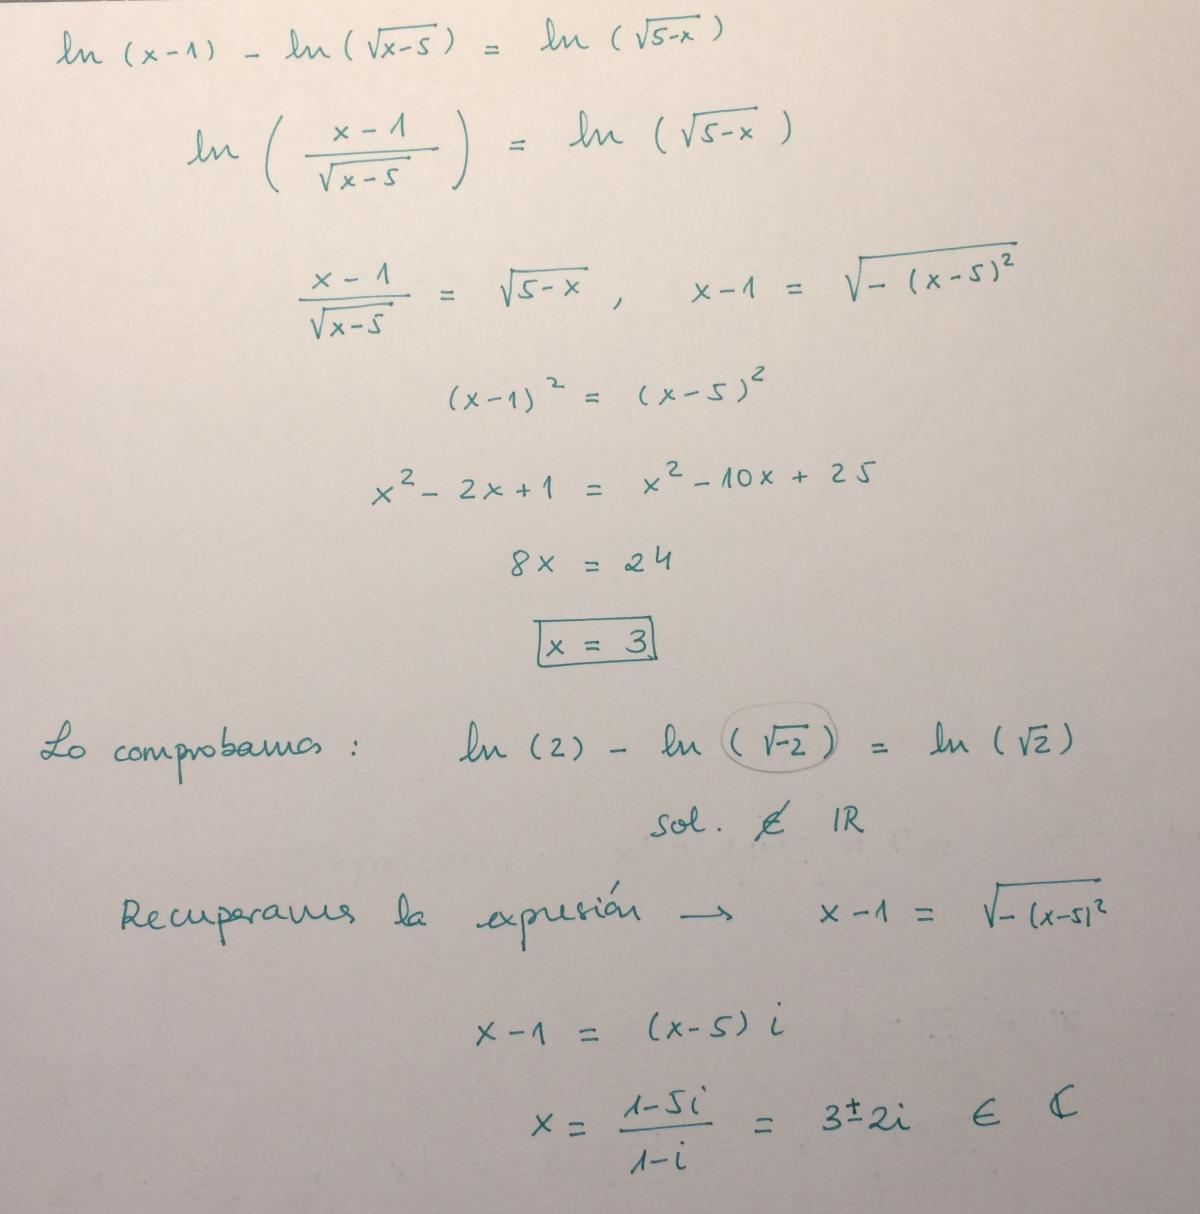 ln (x-1) - ln (√(x-5)) = ln (√(5-x))
ln ( (x-1)/√(x-5) ) = ln (√(5-x))
(x-1)/√(x-5) = √(5-x) , x-1 = √(-(x-5)²)
(x-1)² = (x-5)²
x² - 2x + 1 = x² - 10x + 25
8x = 24
x = 3
Lo comprobamos : ln (2) - ln (√-2) = ln (√2)
sol. ∉ IR
Recuperamos la expresión → x-1 = √(-(x-5)²)
x-1 = (x-5) i
x = (1-5i)/(1-i) = 3±2i ∈ ℂ